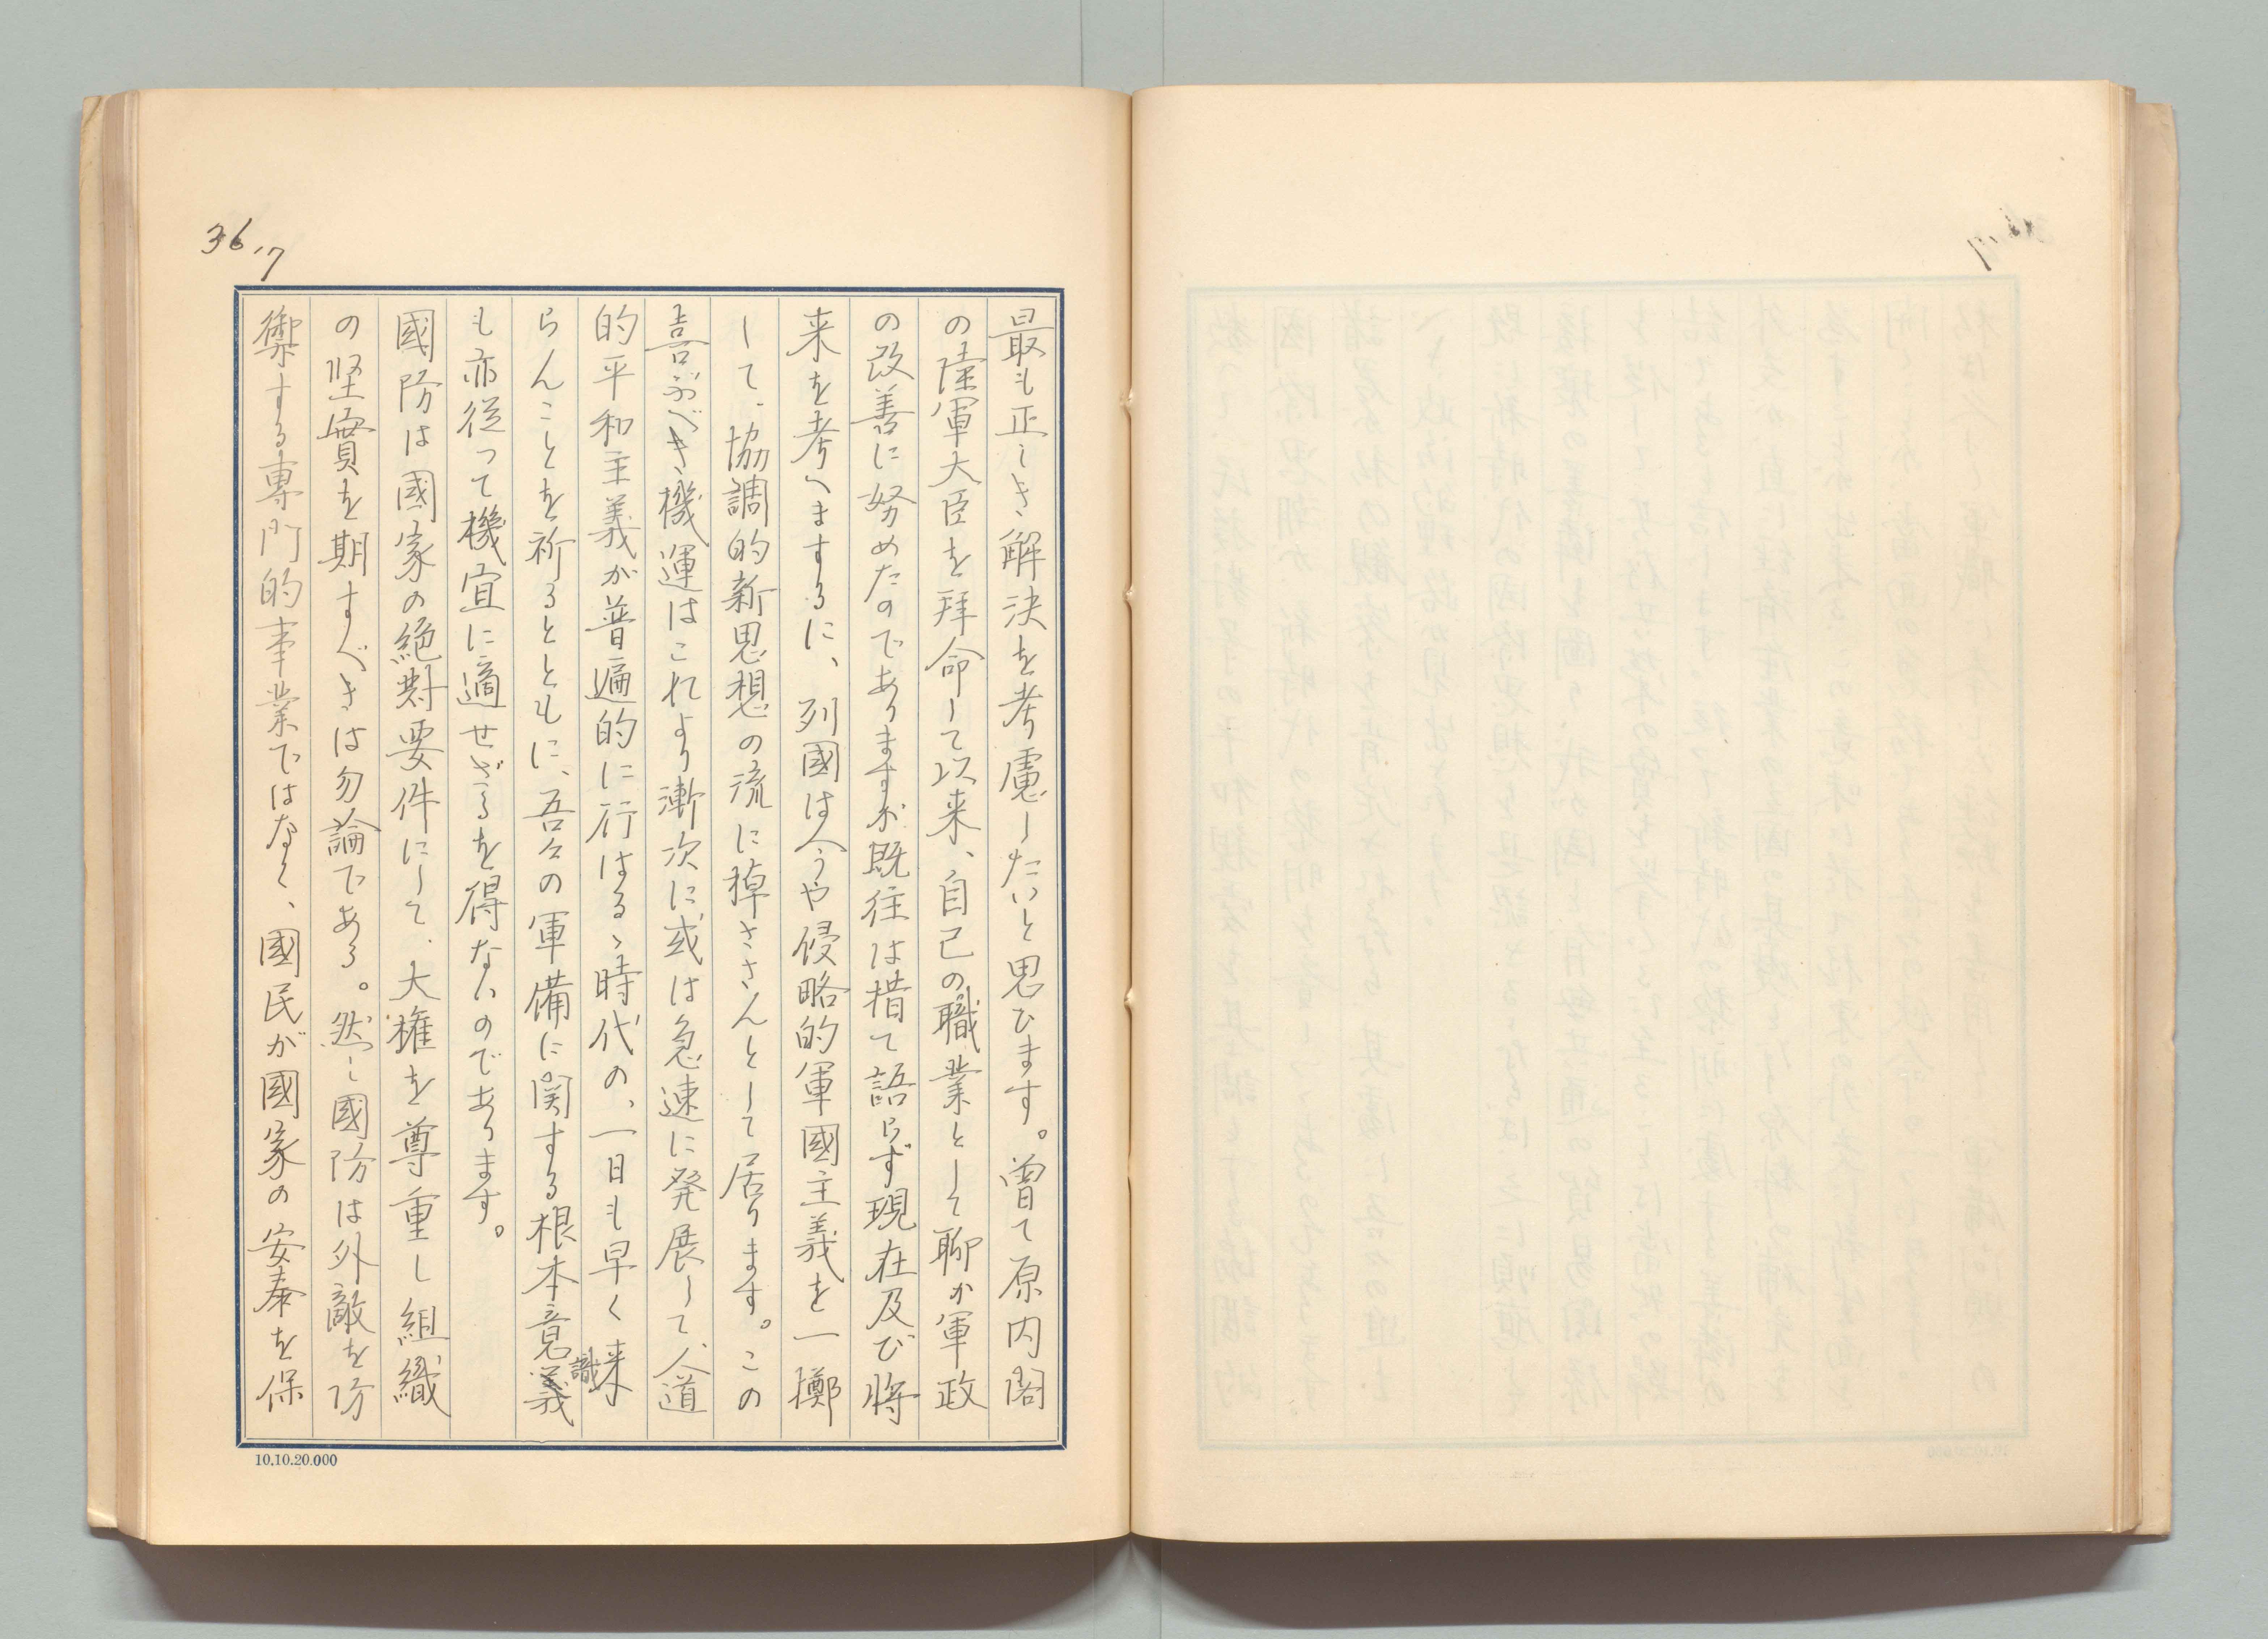 36.7
最も正しき解決を考慮したいと思ひます。曽て原内閣
の陸軍大臣を拜命して以来、自己の職業として聊か軍政
の改善に努めたのでありますが既往は措て語らず現在及び将
来を考へまするに、列國は今や侵略的軍國主義を一擲
して、協調的新思想の流に棹ささんとして居ります。この
喜ぶべき機運はこれより漸次に或は急速に発展して、人道
的平和主義が普遍的に行はるゝ時代の、一日も早く来
らんことを祈るとともに、吾々の軍備に関する根本意義識
も亦従って機宜に適せざるを得ないのであります。
國防は國家の絶對要件にして、大権を尊重し組織
の堅實を期すべきは勿論である。然し國防は外敵を防
禦する専門的事業ではなく、國民が國家の安泰を保
10.10.20.000